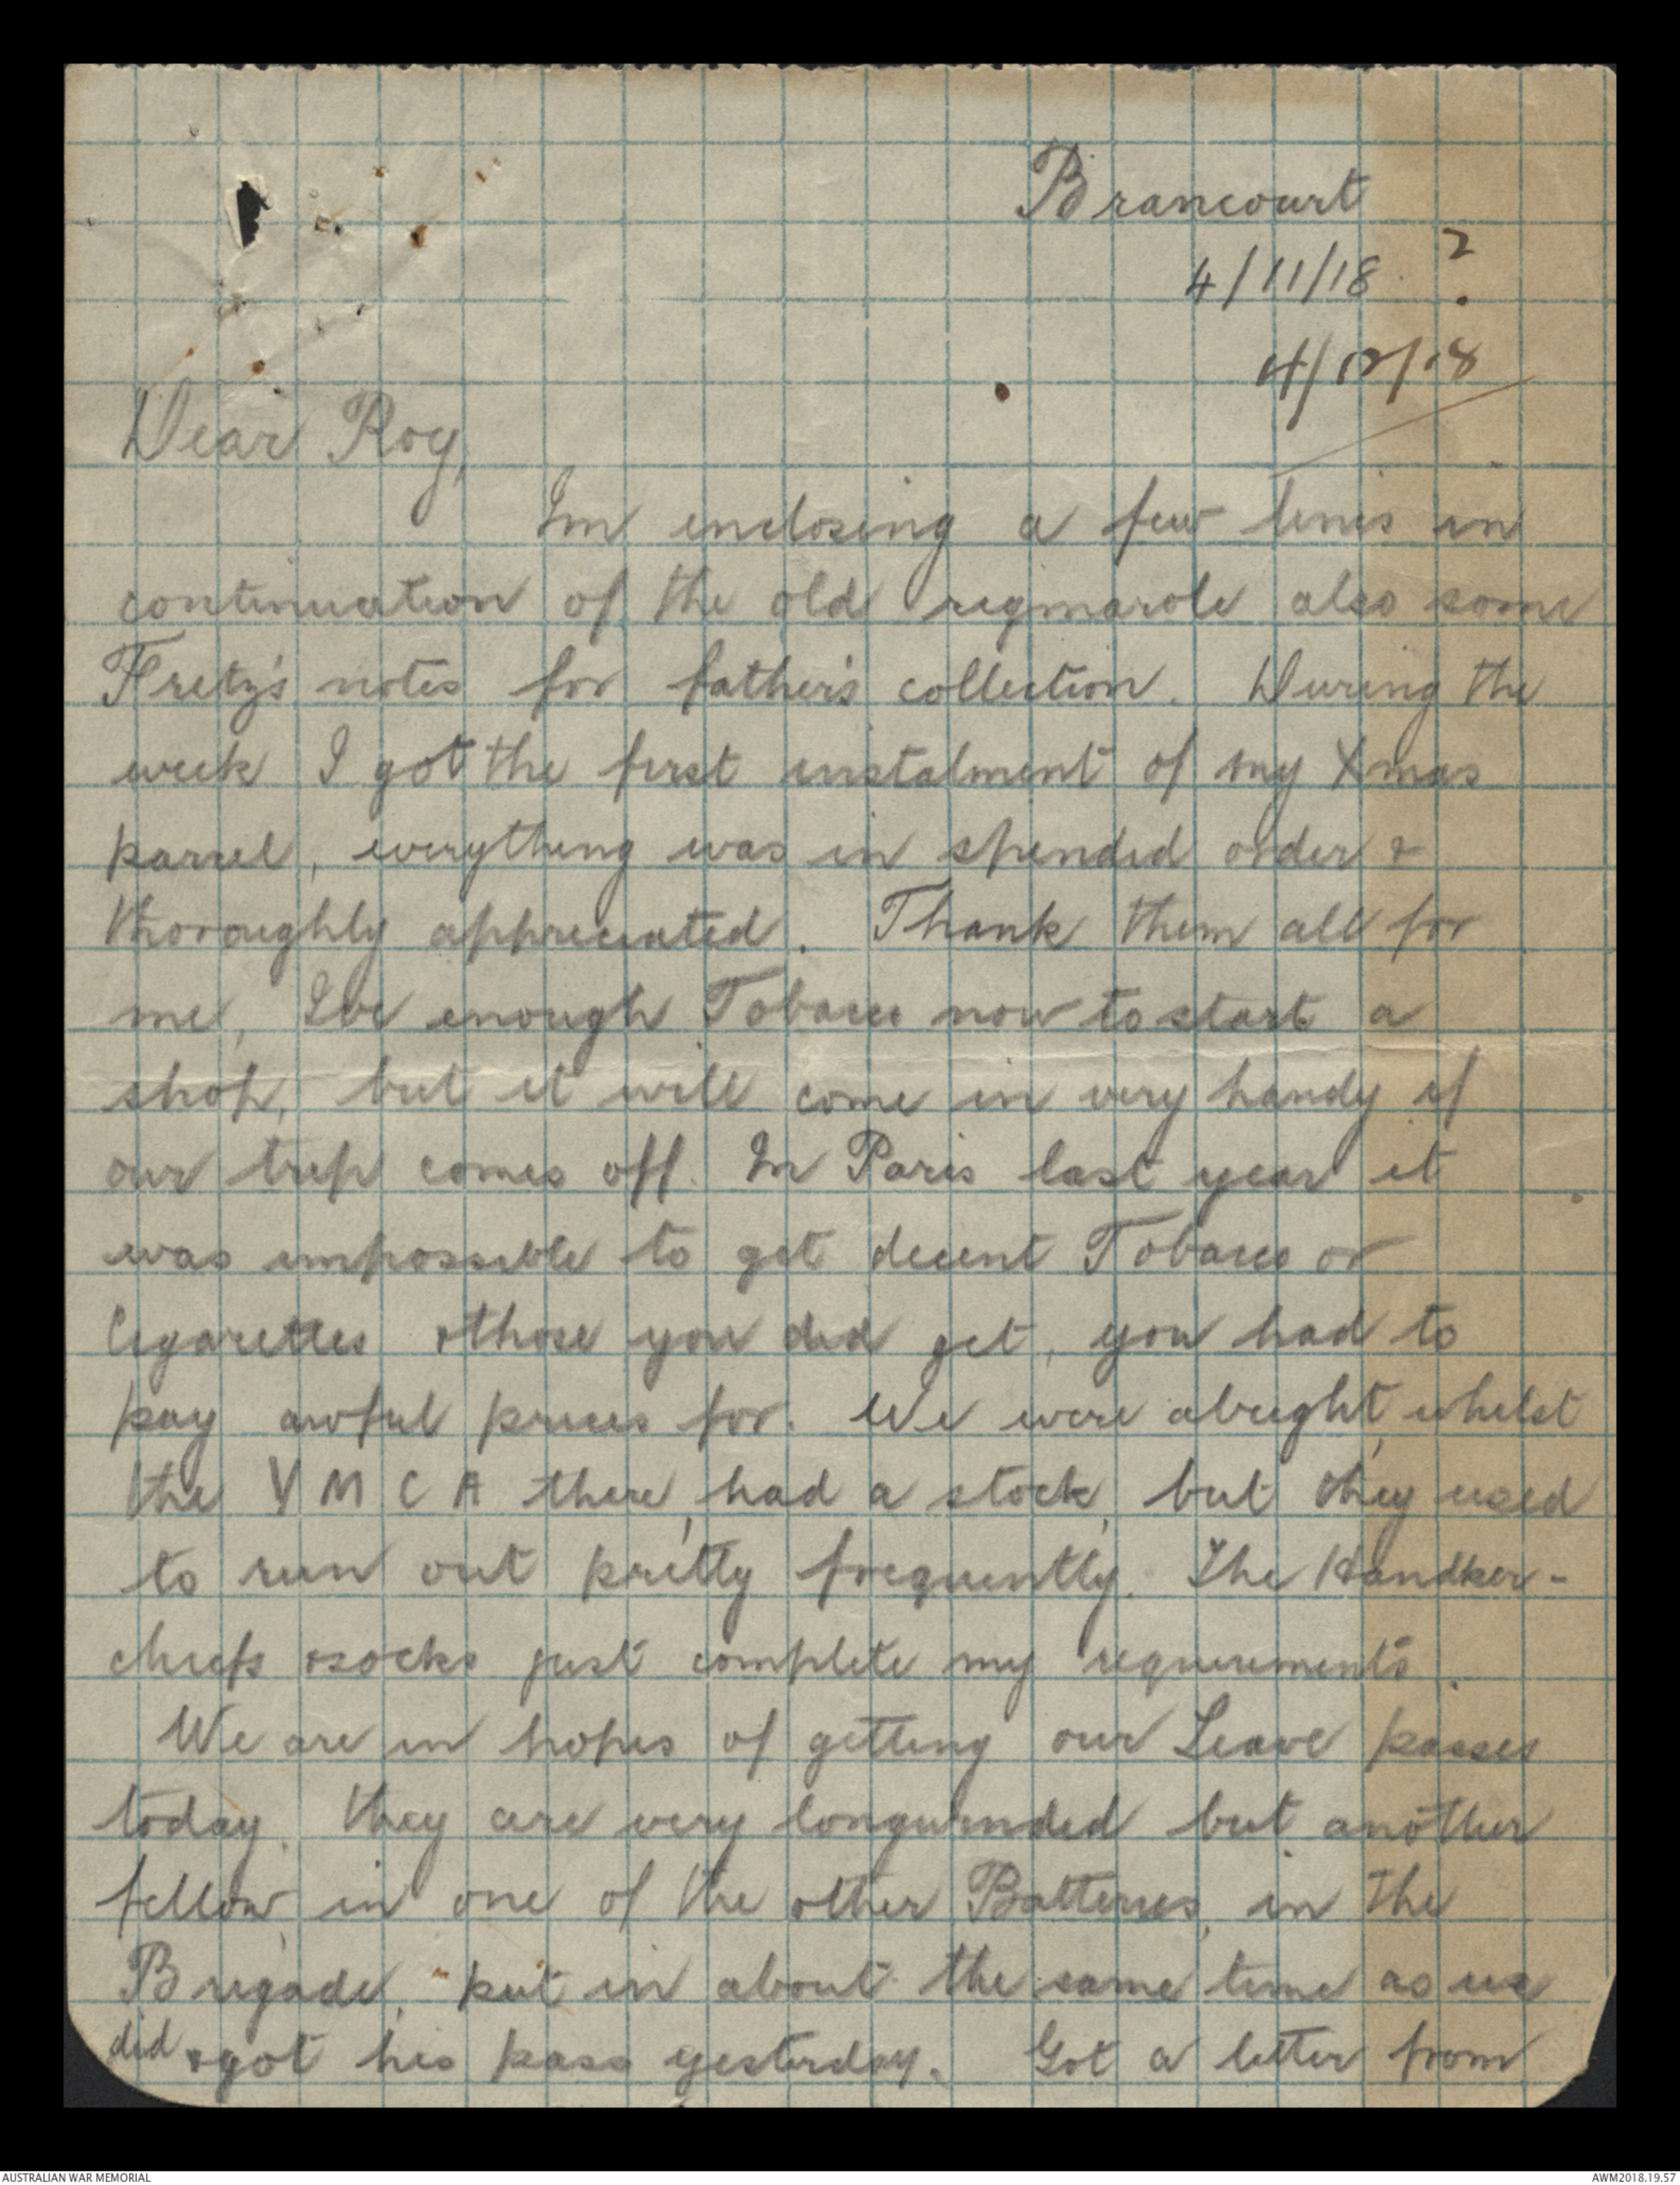 Brancourt
4/11/18 ?
4/12/18
Dear Roy,
Im enclosing a few lines in
continuation of the old rigmarole also some
Fritz's notes for father's collection. During the
week I got the first instalment of my Xmas
parcel, everything was in spended order &
thoroughly appreciated. Thank them all for
me, Ive enough Tobacco now to start a
shop, but it will come in very handy if
our trip comes off. In Paris last year it
was impossible to get decent Tobacco or
Cigarettes & those you did get, you had to
pay awful prices for. We were alright, whilst
the Y M C A there, had a stock, but they used
to run out pretty frequently. The Handker-
chiefs & socks just complete my requirements.
We are in hopes of getting our Leave passes
today, they are very longwinded but another
fellow in one of the other Batteries, in the
Brigade, put in about the same time as us
did & got his pass yesterday. Got a letter from
AUSTRALIAN WAR MEMORIAL
AWM2018.19.57